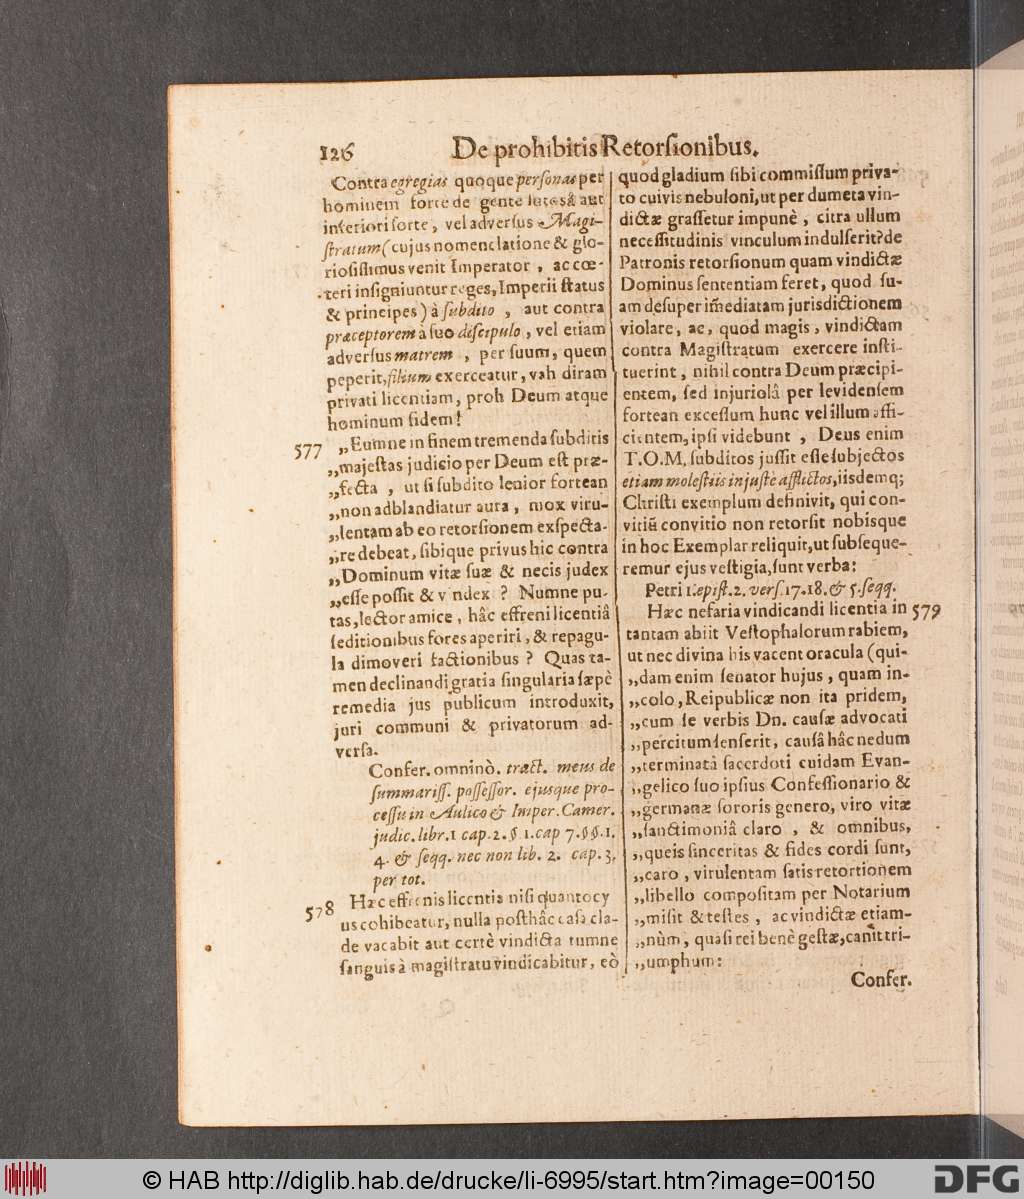 126 De prohibitis Retorsionibus.
Contra egregias quoque personas per
hominem forte de gente lutosâ aut
inferiori sorte, vel adversus Magi-
stratum (cujus nomenclatione & glo-
riosissimus venit Imperator, ac cœ-
teri insigniuntur reges, Imperii status
& principes) à subdito, aut contra
præceptorem à suo discipulo, vel etiam
adversus matrem, per suum, quem
peperit, filium exerceatur, vah diram
privati licentiam, proh Deum atque
hominum fidem!
577 „Eumne in finem tremenda subditis
„majestas judicio per Deum est præ-
„fecta, ut si subdito lenior fortean
„non adblandiatur aura, mox viru-
„lentam ab eo retorsionem exspecta-
„re debeat, sibique privus hic contra
„Dominum vitæ suæ & necis judex
„esse possit & vindex? Numne pu-
tas, lector amice, hâc effreni licentiâ
seditionibus fores aperiri, & repagu-
la dimoveri factionibus? Quas ta-
men declinandi gratia singularia sæpè
remedia jus publicum introduxit,
juri communi & privatorum ad-
versa.
Confer. omninò. tract. meus de
summariss. possessor. ejusque pro-
cessu in Aulico & Imper. Camer.
judic. libr. 1 cap. 2. § 1. cap 7. §§. 1.
4. & seqq. nec non lib. 2. cap. 3.
per tot.
578 Hæc effrenis licentia nisi quantocy
us cohibeatur, nulla posthâc casa cla-
de vacabit aut certè vindicta tumne
sanguis à magistratu vindicabitur, eò
quod gladium sibi commissum priva-
to cuivis nebuloni, ut per dumeta vin-
dictæ grassetur impunè, citra ullum
necessitudinis vinculum indulserit? de
Patronis retorsionum quam vindictæ
Dominus sententiam feret, quod su-
am desuper im̃ediatam jurisdictionem
violare, ac, quod magis, vindictam
contra Magistratum exercere insti-
tuerint, nihil contra Deum præcipi-
entem, sed injuriolâ per levidensem
fortean excessum hunc vel illum affi-
cientem, ipsi videbunt, Deus enim
T.O.M. subditos jussit esse subjectos
etiam molestiis injuste afflictos, iisdemq;
Christi exemplum definivit, qui con-
vitiũ convitio non retorsit nobisque
in hoc Exemplar reliquit, ut subseque-
remur ejus vestigia, sunt verba:
Petri 1. epist. 2. vers. 17. 18. & 5. seqq.
Hæc nefaria vindicandi licentia in 579
tantam abiit Vestophalorum rabiem,
ut nec divina his vacent oracula (qui-
„dam enim senator hujus, quam in-
„colo, Reipublicæ non ita pridem,
„cum se verbis Dn. causæ advocati
„percitum senserit, causâ hâc nedum
„terminatâ sacerdoti cuidam Evan-
„gelico suo ipsius Confessionario &
„germanæ sororis genero, viro vitæ
„sanctimoniâ claro, & omnibus,
„queis sinceritas & fides cordi sunt,
„caro, virulentam satis retortionem
„libello compositam per Notarium
„misit & testes, ac vindictæ etiam-
„nùm, quasi rei benè gestæ, canit tri-
„umphum:
Confer.
© HAB http://diglib.hab.de/drucke/li-6995/start.htm?image=00150
DFG